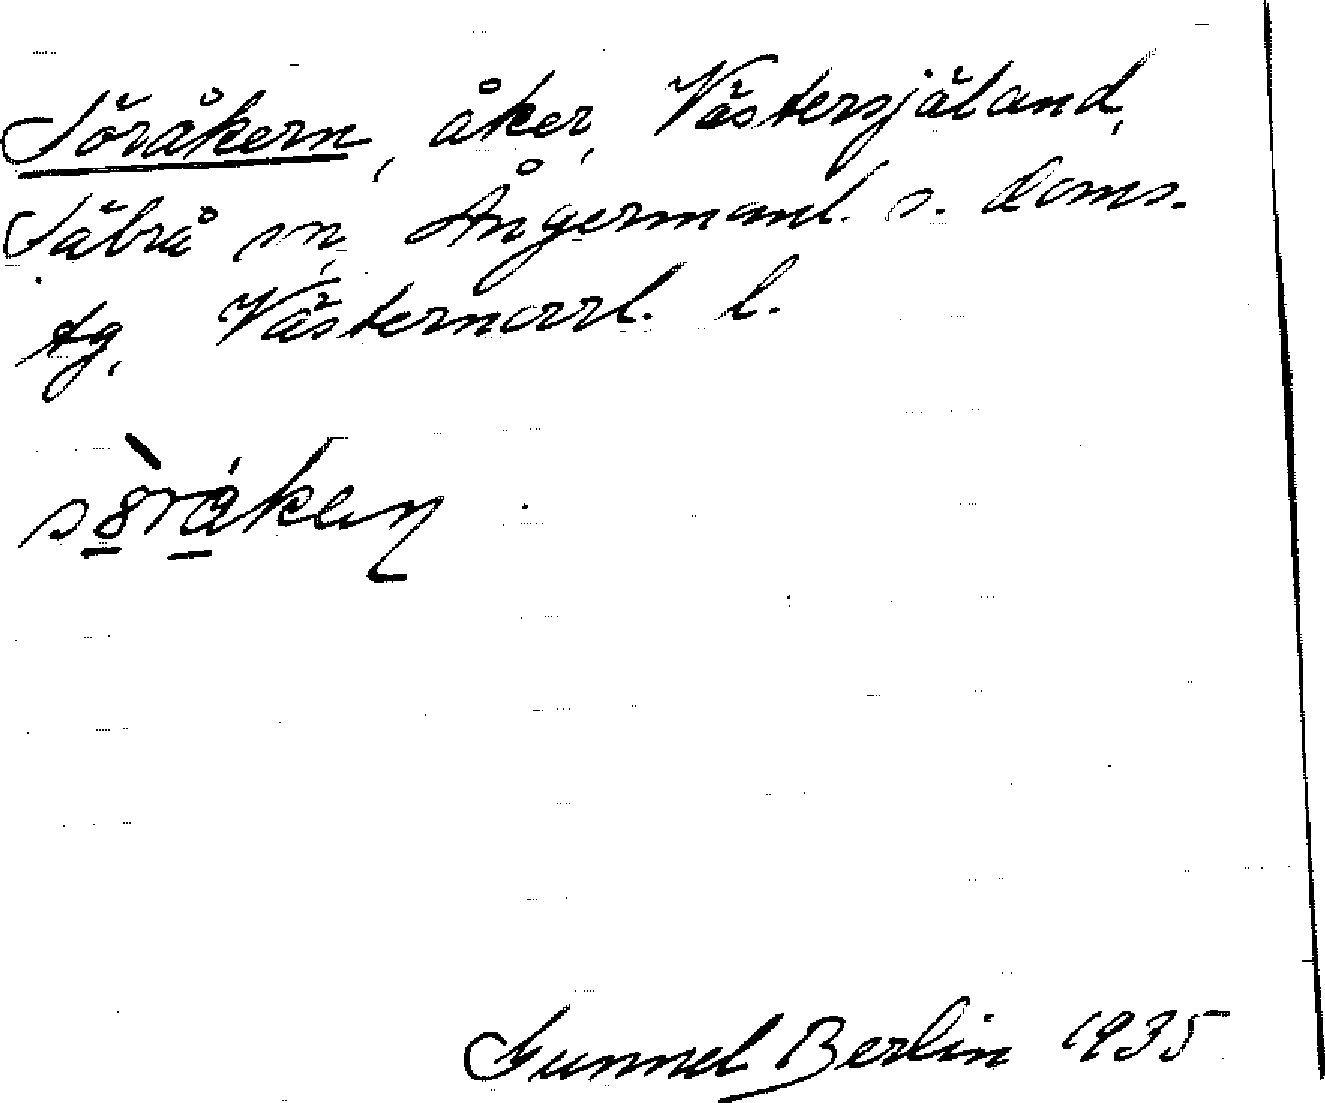 Söråkern, åker, Västersjäland,
Säbrå sn, Ångermanl. s. doms.
tg, Västernorrl. l.
sö̀råken
Gunnel Berlin 1935